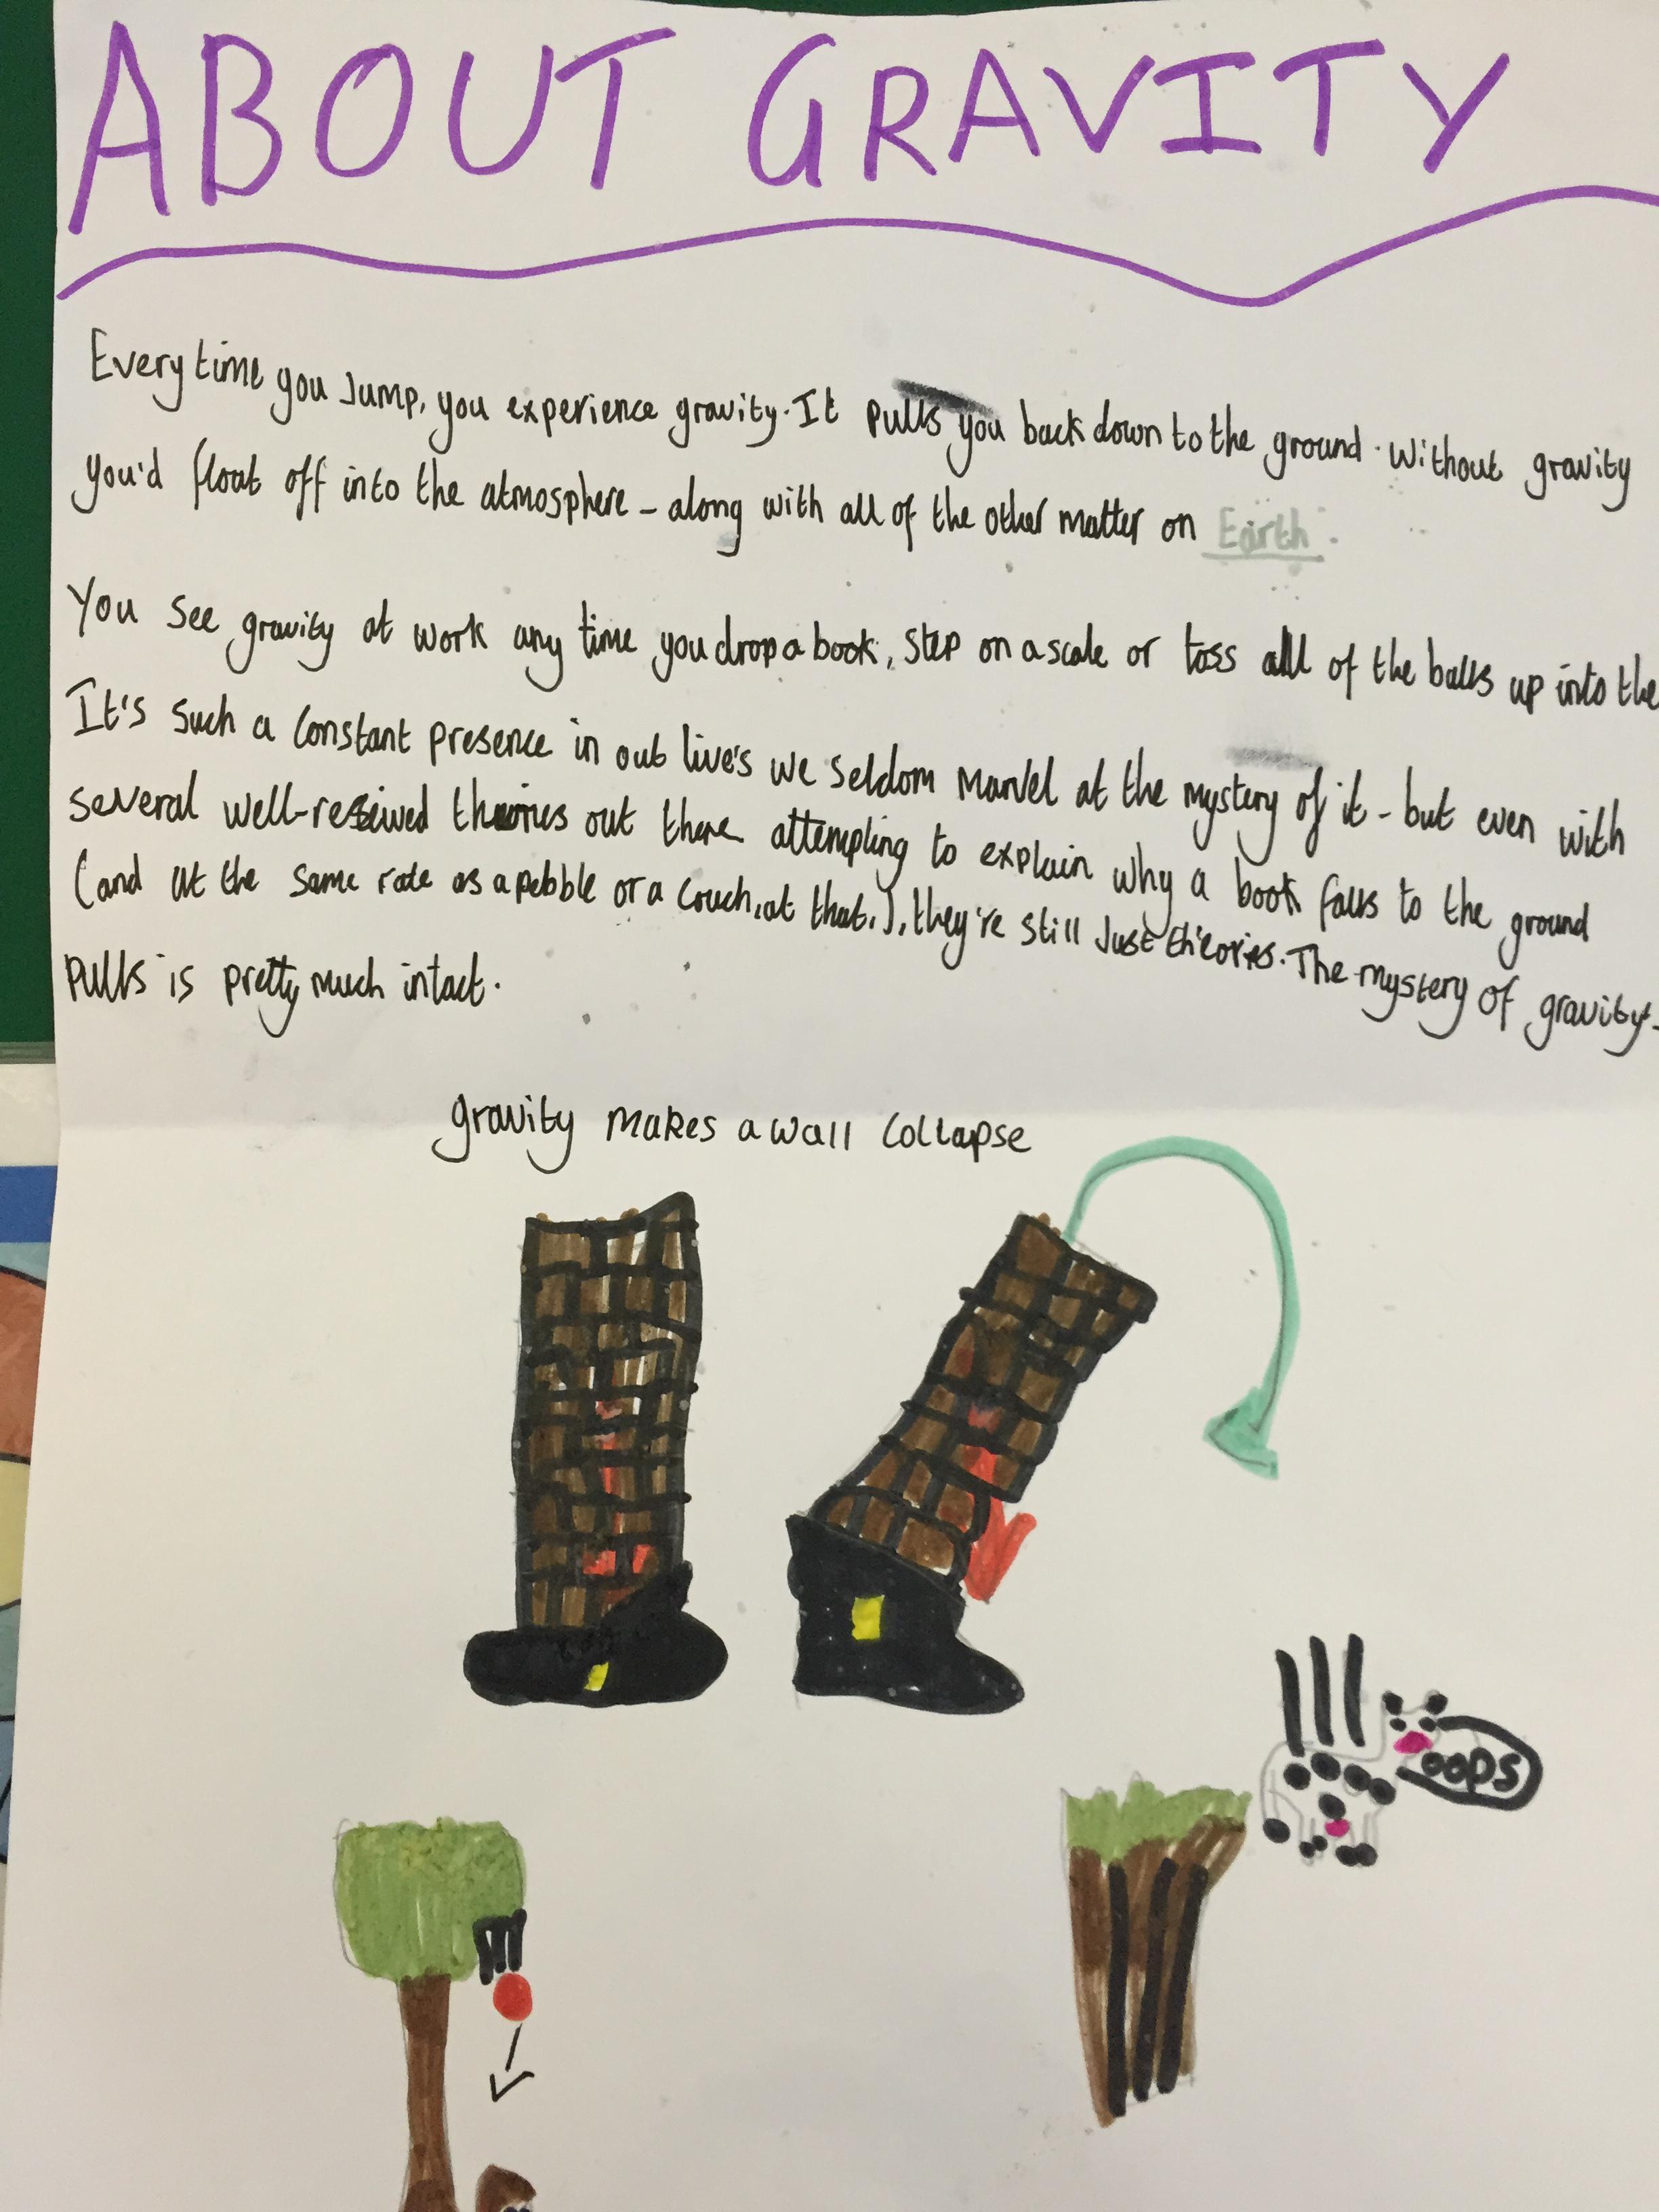 ABOUT GRAVITY
Every time you Jump, you experience gravity. It pulls you back down to the ground. Without gravity
you'd float off into the atmosphere - along with all of the other matter on Earth.
You see gravity at work any time you drop a book, step on a scale or toss all of the balls up into the
It's such a constant presence in our live's we seldom marvel at the mystery of it - but even with
several well-received theories out there attempting to explain why a book falls to the ground
(and at the same rate as a pebble or a couch, at that.), they're still Just theories. The mystery of gravity-
pulls is pretty much intact.
gravity makes a wall collapse
oops